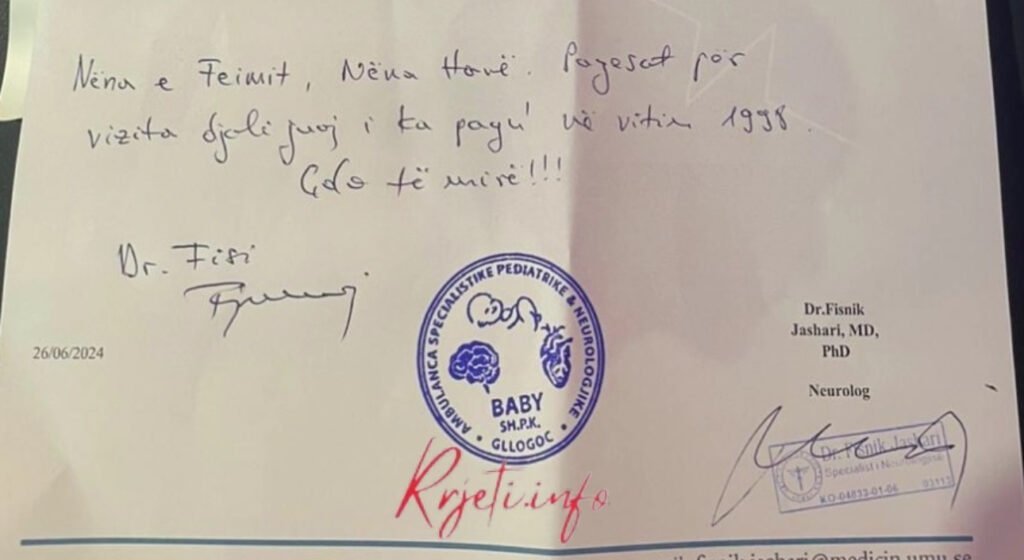 Nëna e Feimit, Nëna Havë. Pagesat për
vizita djali juaj i ka pagu' në vitin 1998.
Çdo të mirë!!!
Dr. Fisi
26/06/2024
AMBULANCA SPECIALISTIKE PEDIATRIKE & NEUROLOGJIKE
BABY
SH.P.K.
GLLOGOC
Rrjeti.info
Dr.Fisnik
Jashari, MD,
PhD
Neurolog
Dr. Fisnik Jashari
Specialist i
03113
fisnik.jashari@medicin.umu.se